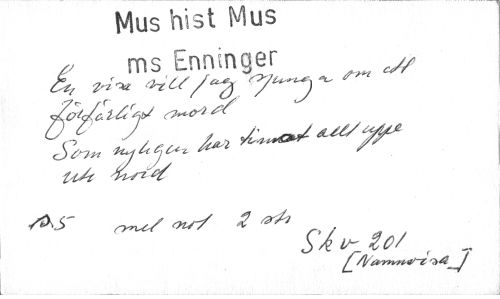 Mus hist Mus
ms Enninger
En visa vill jag sjunga om ett
förfärligt mord
Som nyligen har timat allt uppe
ute nord
s. 5 mel not 2 str
Skv 201
[Namnvisa_]